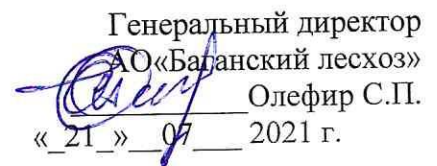 Генеральный директор
АО«Баганский лесхоз»
____________Олефир С.П.
«_21_»__07___ 2021 г.